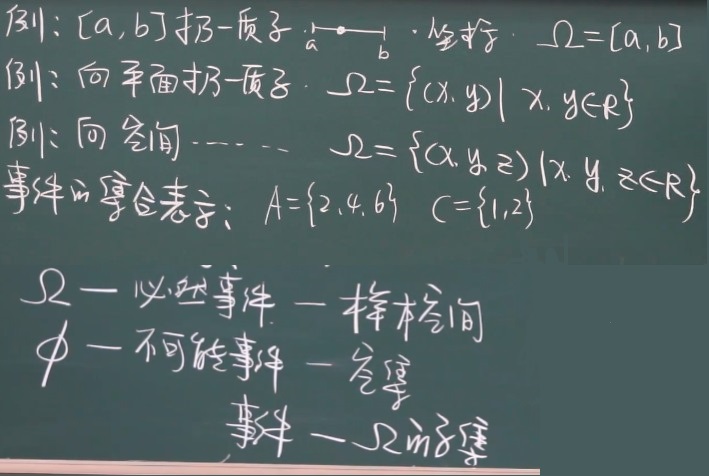 例:[a,b]扔一质子 a b ·坐标· Ω=[a,b]
例:向平面扔一质子· Ω={(x.y)| x.y∈R}
例:向空间…… Ω={(x.y.z)|x.y.z∈R}
事件的集合表示: A={2.4.6} C={1,2}
Ω — 必然事件 — 样本空间
ϕ — 不可能事件 — 空集
事件 — Ω的子集